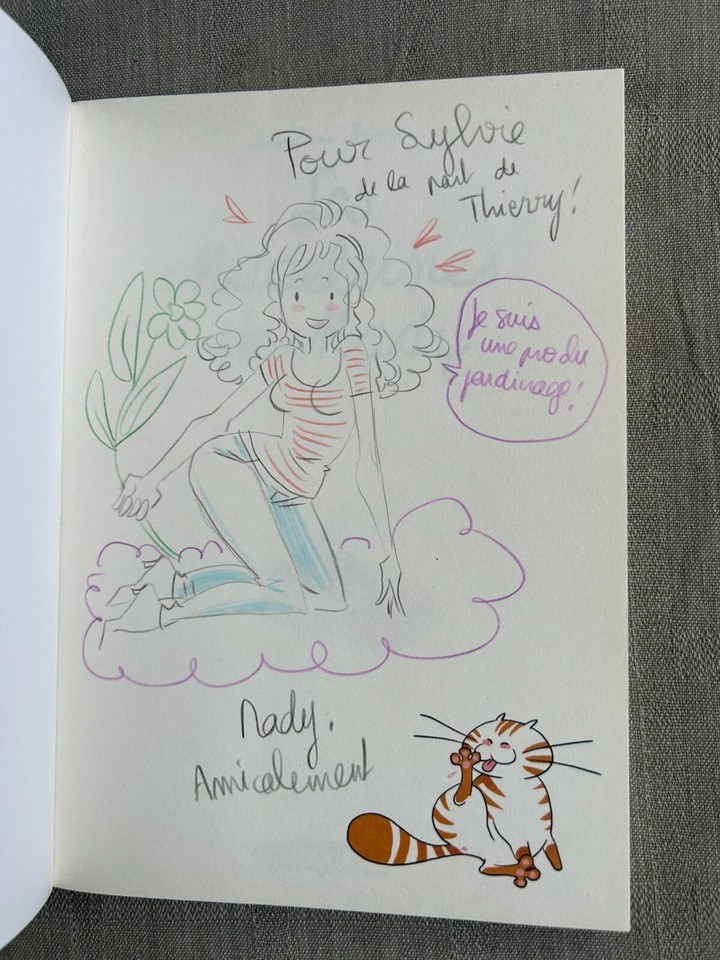 Pour Sylvie
de la part de
Thierry!
Je suis
une pro du
jardinage!
Nady.
Amicalement